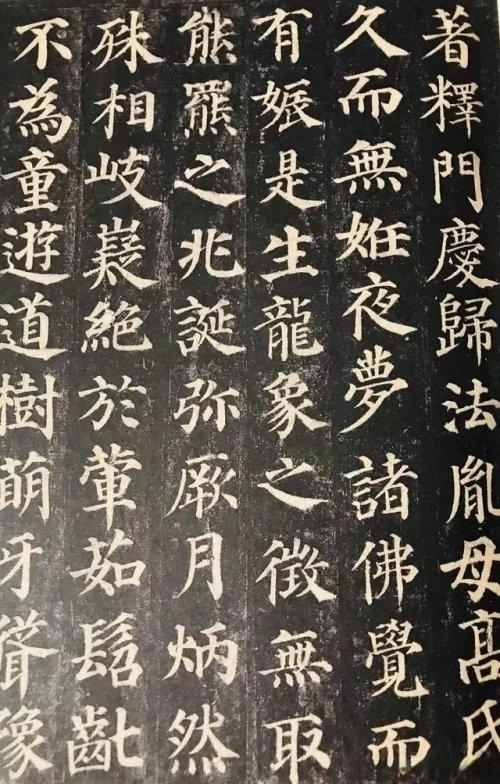 著釋門慶歸法胤母髙氏
久而無姙夜夢諸佛覺而
有娠是生龍象之徵無取
熊羆之兆誕弥厥月炳然
殊相岐嶷絶於葷茹髫齓
不為童遊道樹萌牙聳豫